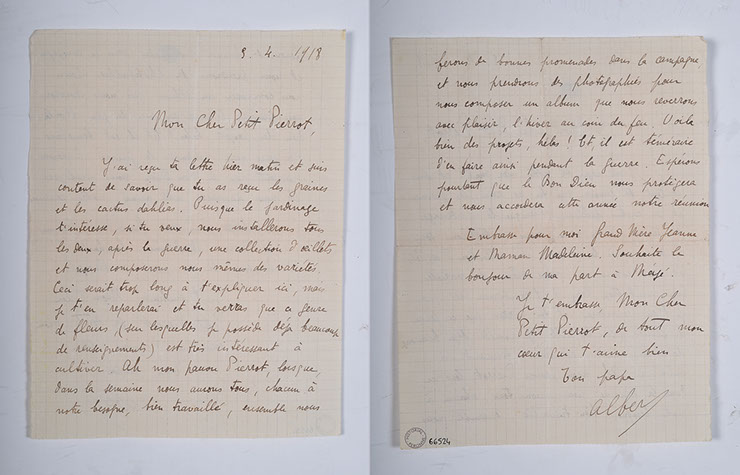 3. 4. 1918
Mon Cher Petit Pierrot,
J'ai reçu ta lettre hier matin et suis
content de savoir que tu as reçu les graines
et les cactus dahlias. Puisque le jardinage
t'intéresse, si tu veux, nous installerons tous
les deux, après la guerre, une collection d'oeillets
et nous composerons nous mêmes des variétés.
Ceci serait trop long à t'expliquer ici, mais
je t'en reparlerai et tu verras que ce genre
de fleurs (sur lesquelles je possède déjà beaucoup
de renseignements) est très intéressant à
cultiver. Ah mon Pierrot, lorsque,
dans la semaine nous aurons tous, chacun à
notre besogne, bien travaillé, ensemble nous
ferons de bonnes promenades dans la campagne
et nous prendrons des photographies pour
nous composer un album que nous reverrons
avec plaisir, l'hiver au coin du feu. Voilà
bien des projets, hélas! Et, il est téméraire
d'en faire ainsi pendant la guerre. Espérons
pourtant que le Bon Dieu nous protégera
et nous accordera cette année notre réunion
Embrasse pour moi Grand Mère Jeanne
et Maman Madeleine. Souhaite le
bonjour de ma part à
Je t'embrasse, Mon Cher
Petit Pierrot, de tout mon
coeur qui t'aime bien
Ton papa
Albert
66524